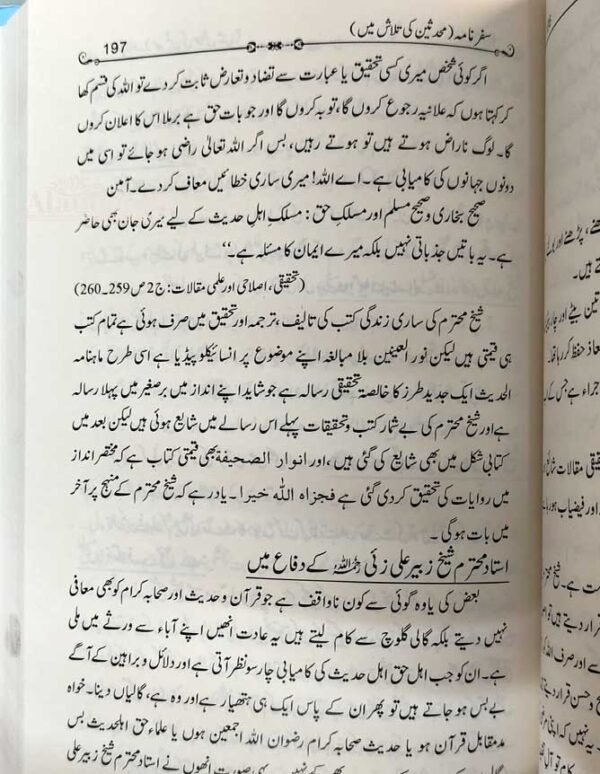 سفر نامہ (محدثین کی تلاش میں)
197
اگر کوئی شخص میری کسی تحقیق یا عبارت سے تضاد و تعارض ثابت کر دے تو اللہ کی قسم کھا
کر کہتا ہوں کہ علانیہ رجوع کروں گا، توبہ کروں گا اور جو بات حق ہے برملا اس کا اعلان کروں
گا۔ لوگ ناراض ہوتے ہیں تو ہوتے رہیں، بس اگر اللہ تعالیٰ راضی ہو جائے تو اسی میں
دونوں جہانوں کی کامیابی ہے۔ اے اللہ! میری ساری خطائیں معاف کر دے۔ آمین
صحیح بخاری و صحیح مسلم اور مسلکِ حق: مسلکِ اہلِ حدیث کے لیے میری جان بھی حاضر
ہے۔ یہ باتیں جذباتی نہیں بلکہ میرے ایمان کا مسئلہ ہے۔‘‘
(تحقیقی، اصلاحی اور علمی مقالات: ج2 ص 259۔260)
شیخ محترم کی ساری زندگی کتب کی تالیف، ترجمہ اور تحقیق میں صرف ہوئی ہے تمام کتب
ہی قیمتی ہیں لیکن نور العینین بلا مبالغہ اپنے موضوع پر انسائیکلوپیڈیا ہے اسی طرح ماہنامہ
الحدیث ایک جدید طرز کا خالصۃ تحقیقی رسالہ ہے جو شاید اپنے انداز میں برصغیر میں پہلا رسالہ
ہے اور شیخ محترم کی بے شمار کتب و تحقیقات پہلے اس رسالے میں شایع ہوئی ہیں لیکن بعد میں
کتابی شکل میں بھی شایع کی گئی ہیں، اور انوار الصحیفۃ بھی قیمتی کتاب ہے کہ مختصر انداز
میں روایات کی تحقیق کر دی گئی ہے فجزاہ اللہ خیرا۔ یاد رہے کہ شیخ محترم کے منہج پر آخر
میں بات ہوگی۔
استاد محترم شیخ زبیر علی زئی رحمہ اللہ کے دفاع میں
بعض کی یاوہ گوئی سے کون ناواقف ہے جو قرآن و حدیث اور صحابہ کرام کو بھی معافی
نہیں دیتے بلکہ گالی گلوچ سے کام لیتے ہیں یہ عادت انھیں اپنے آباء سے ورثے میں ملی
ہے۔ ان کو جب اہل حق اہل حدیث کی کامیابی چار سو نظر آتی ہے اور دلائل و براہین کے آگے
بے بس ہو جاتے ہیں تو پھر ان کے پاس ایک ہی ہتھیار ہے اور وہ ہے، گالیاں دینا۔ خواہ
مد مقابل قرآن ہو یا حدیث صحابہ کرام رضوان اللہ اجمعین ہوں یا علماء حق اہلحدیث بس
نہیں یہی صورت انھوں نے استاد محترم شیخ زبیر علی